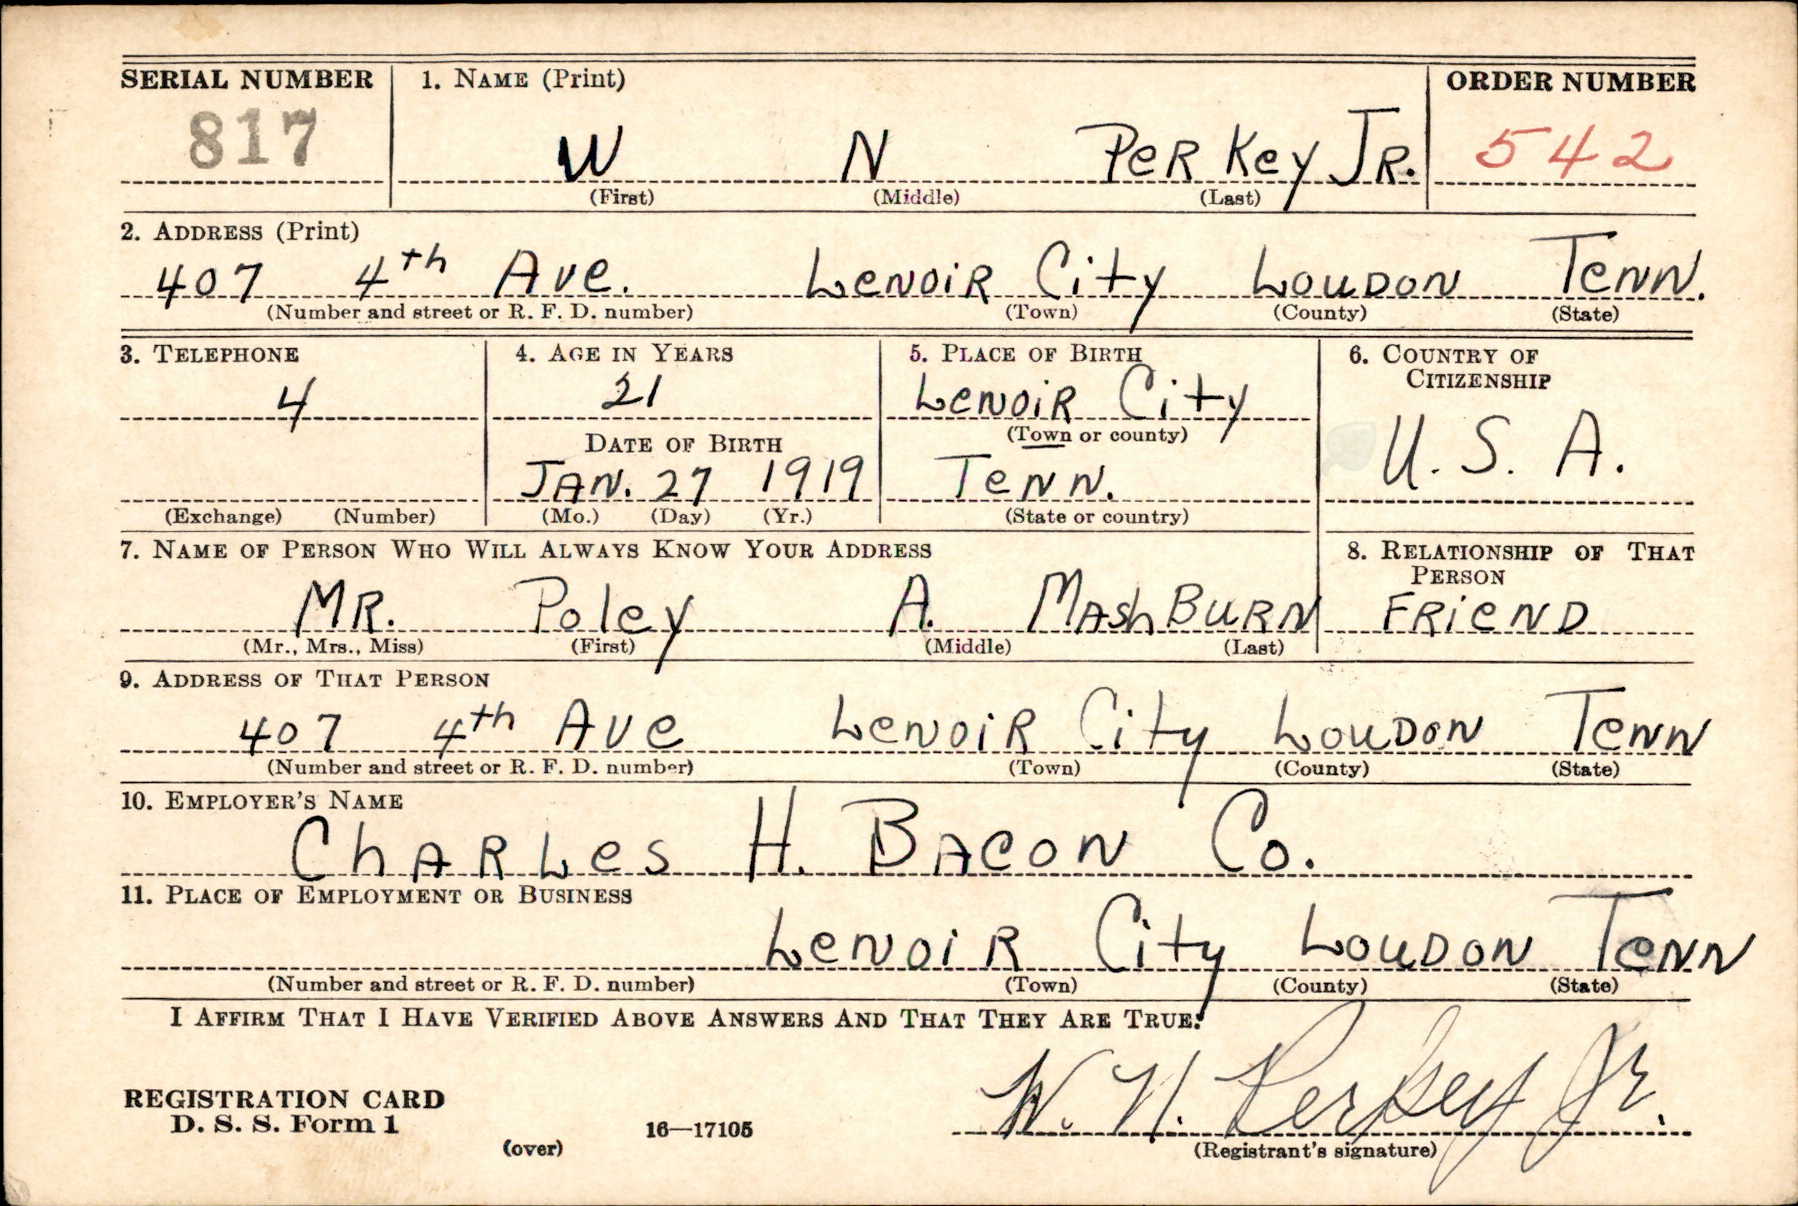 SERIAL NUMBER 1. NAME (Print) ORDER NUMBER
817 W N PERKEY JR. 542
(First) (Middle) (Last)
2. ADDRESS (Print)
407 4th Ave. Lenoir City Loudon Tenn.
(Number and street or R. F. D. number) (Town) (County) (State)
3. TELEPHONE 4. AGE IN YEARS 5. PLACE OF BIRTH 6. COUNTRY OF CITIZENSHIP
4 21 Lenoir City U. S. A.
(Town or county)
DATE OF BIRTH
JAN. 27 1919 Tenn.
(Exchange) (Number) (Mo.) (Day) (Yr.) (State or country)
7. NAME OF PERSON WHO WILL ALWAYS KNOW YOUR ADDRESS 8. RELATIONSHIP OF THAT PERSON
MR. Poley A. MashBurn Friend
(Mr., Mrs., Miss) (First) (Middle) (Last)
9. ADDRESS OF THAT PERSON
407 4th Ave Lenoir City Loudon Tenn
(Number and street or R. F. D. number) (Town) (County) (State)
10. EMPLOYER'S NAME
Charles H. Bacon Co.
11. PLACE OF EMPLOYMENT OR BUSINESS
Lenoir City Loudon Tenn
(Number and street or R. F. D. number) (Town) (County) (State)
I AFFIRM THAT I HAVE VERIFIED ABOVE ANSWERS AND THAT THEY ARE TRUE.
W. N. Perkey Jr.
REGISTRATION CARD
D. S. S. Form 1 16—17105
(over) (Registrant's signature)